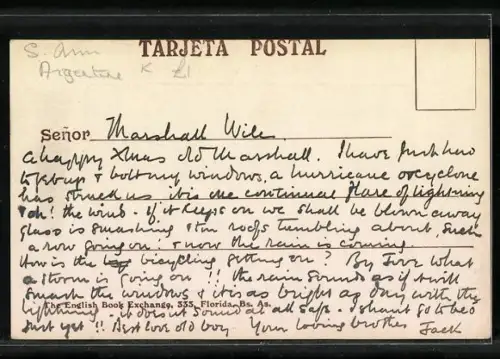 S. Am
Argentine K £1
TARJETA POSTAL
Señor Marshall Wile
A happy Xmas old Marshall. I have just had
to get up & bolt my windows, a hurricane or cyclone
has struck us it is one continual flare of lightning
& oh! the wind. If it keeps on we shall be blown away
glass is smashing & tin roofs tumbling about, such
a row going on! & now the rain is coming.
How is the bicycling getting on? By Jove what
a storm is going on!! the rain sounds as if it will
smash the windows & it is as bright as day with the
The English Book Exchange, 333, Florida, Bs. As.
lightning. it does not sound at all safe. I shan't go to bed
just yet!! Best love old boy Your loving brother Jack